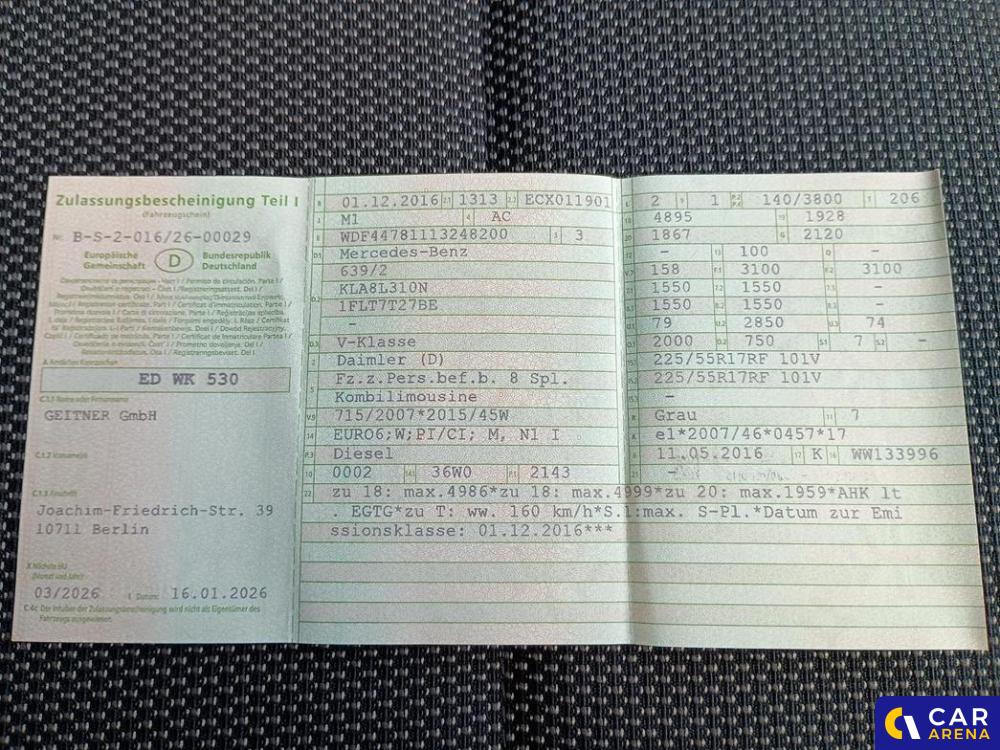 Zulassungsbescheinigung Teil I
(Fahrzeugschein)
Nr. B-S-2-016/26-00029
Europäische Gemeinschaft
D
Bundesrepublik Deutschland
A Amtliches Kennzeichen
ED WK 530
C.1.1 Name oder Firmenname
GEITNER GmbH
C.1.2 Vorname(n)
C.1.3 Anschrift
Joachim-Friedrich-Str. 39
10711 Berlin
X Nächste HU
(Monat und Jahr)
03/2026 I Datum: 16.01.2026
C.4c Der Inhaber der Zulassungsbescheinigung wird nicht als Eigentümer des
Fahrzeugs ausgewiesen.
B 01.12.2016 2.1 1313 2.2 ECX011901
J M1 4 AC
E WDF44781113248200 3 3
D.1 Mercedes-Benz
639/2
D.2 KLA8L310N
1FLT7T27BE
-
D.3 V-Klasse
2 Daimler (D)
5 Fz.z.Pers.bef.b. 8 Spl.
Kombilimousine
V.9 715/2007*2015/45W
14 EURO6;W;PI/CI; M, N1 I
P.3 Diesel
10 0002 14.1 36W0 P.1 2143
L 2 9 1 P.2 P.4 140/3800 T 206
18 4895 19 1928
20 1867 G 2120
12 - 13 100 Q -
V.7 158 F.1 3100 F.2 3100
7.1 1550 7.2 1550 7.3 -
8.1 1550 8.2 1550 8.3 -
U.1 79 U.2 2850 U.3 74
O.1 2000 O.2 750 S.1 7 S.2 -
15.1 225/55R17RF 101V
15.2 225/55R17RF 101V
15.3 -
R Grau 11 7
K e1*2007/46*0457*17
6 11.05.2016 17 K 16 WW133996
21 -
22 zu 18: max.4986*zu 18: max.4999*zu 20: max.1959*AHK lt
. EGTG*zu T: ww. 160 km/h*S.1:max. S-Pl.*Datum zur Emi
ssionsklasse: 01.12.2016***
CAR
ARENA